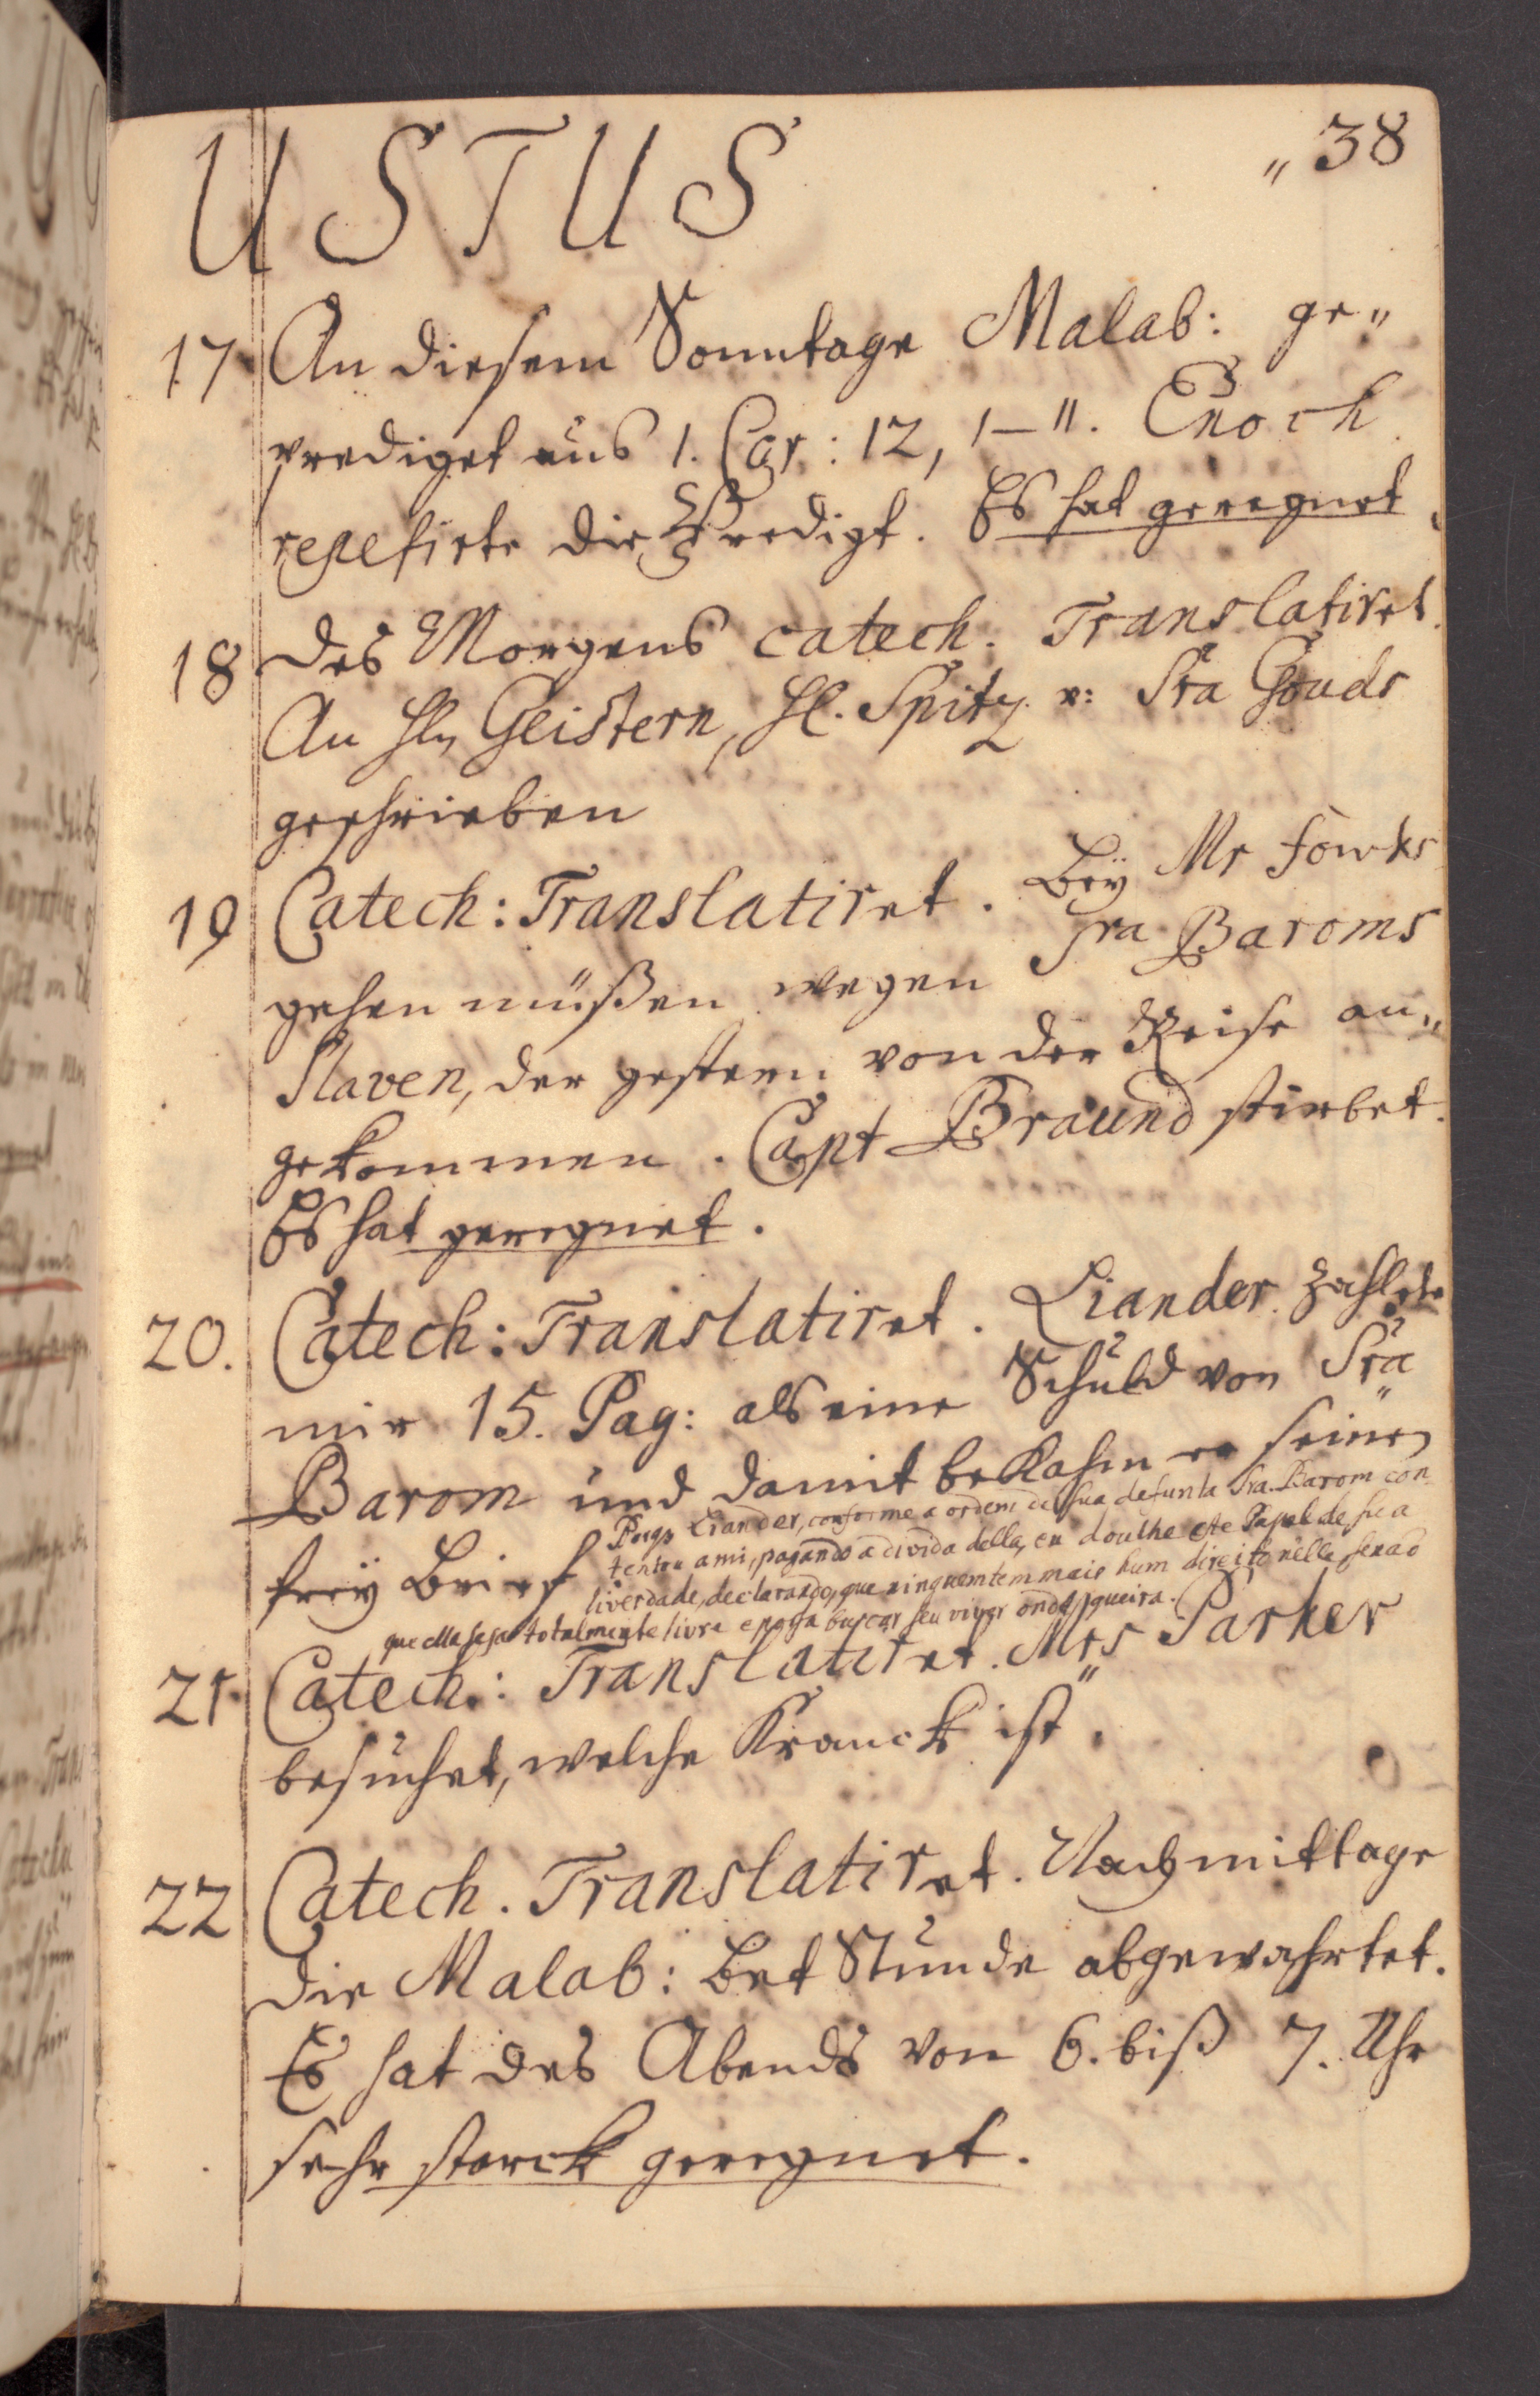 USTUS
" 38
17 An diesem Sonntage Malab: ge"
prediget aus 1. Cor: 12, 1–11. Enoch
repetirte die Predigt. Es hat geregnet.
18 Des Morgens catech. Translatiret.
An Hln Geistern, Hl. Spitz u: Sra Gouds
geschrieben
19 Catech: Translatiret. Bey Mr Fowks
gehen müßen wegen Sra Baroms
Slaven, der gestern von der Reise an"
gekommen. Capt Braund stirbet.
Es hat geregnet.
20. Catech: Translatiret. Liander zahlete
mir 15. Pag: als eine Schuld von Sra
Barom und damit bekahm er seinen
frey Brief
Liander, conforme a ordem de sua defunta Sra. Barom con
tentou a mi, pagando a divida della, eu doulhe este Papel de sua
liverdade, declarando, que ninguem tem mais hum direito nelle, senaõ
que ella seja totalmente livre e possa buscar seu viver onde queira.
21. Catech.: Translatiret. Mrs Parker
besuchet, welche Kranck ist.
22 Catech. Translatiret. Nachmittage
die Malab: Bet Stunde abgewahrtet.
Es hat des Abends von 6. biß 7. Uhr
sehr starck geregnet.